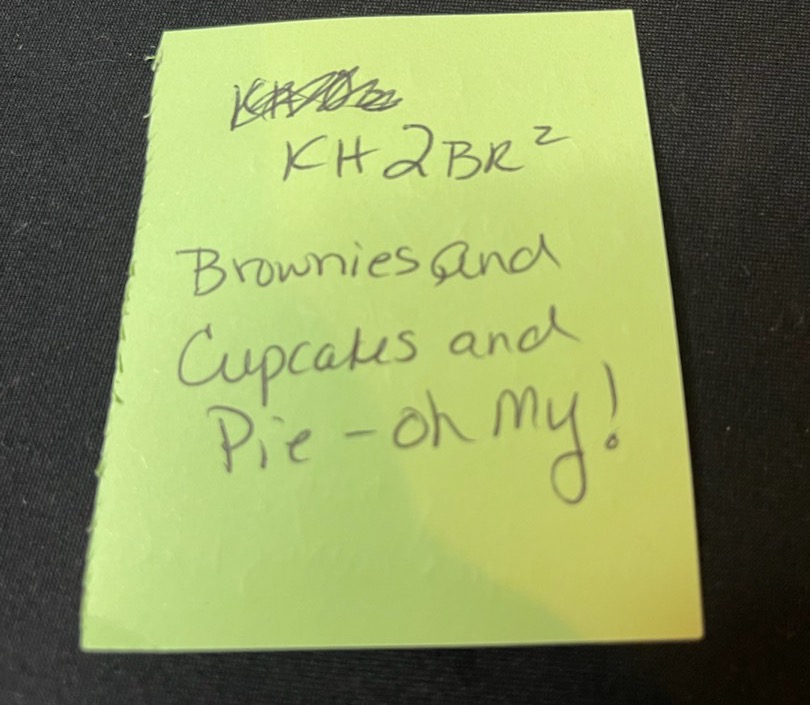 KH2BR²
Brownies and
Cupcakes and
Pie - oh My!